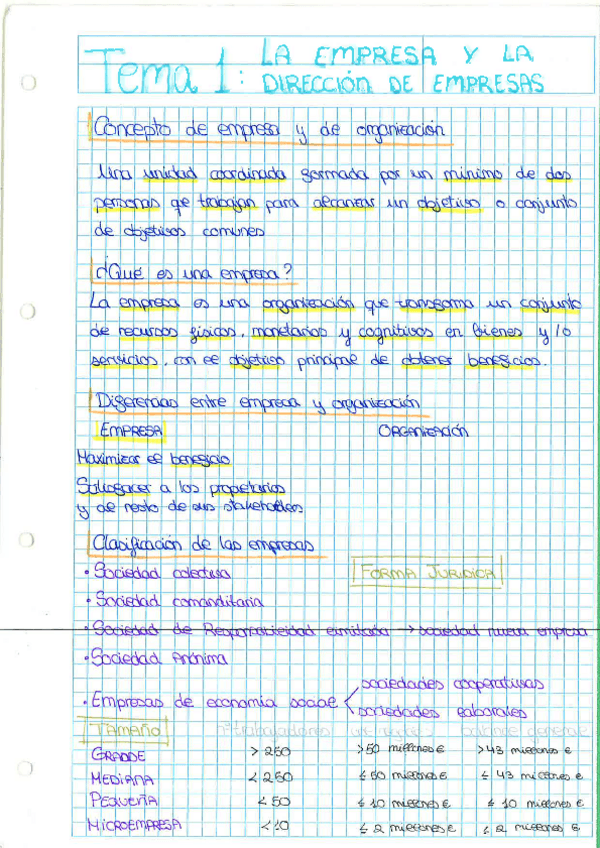 Tema 1: LA EMPRESA Y LA DIRECCIÓN DE EMPRESAS
Concepto de empresa y de organización
Una unidad coordinada formada por un mínimo de dos
personas qe trabajan para alcanzar un objetivo o conjunto
de objetivos comunes
¿Qué es una empresa?
La empresa es una organización que transforma un conjunto
de recursos físicos, monetarios y cognitivos en bienes y/o
servicios, con el objetivo principal de obtener beneficios.
Diferencias entre empresa y organización
EMPRESA ORGANIZACIÓN
Maximizar el beneficio
Satisfacer a los propietarios
y al resto de sus stakeholders
Clasificación de las empresas
• Sociedad colectiva FORMA JURIDICA
• Sociedad comanditaria
• Sociedad de Responsabilidad limitada → sociedad nueva empresa
• Sociedad Anónima
• Empresas de economía social < sociedades cooperativas
sociedades laborales
TAMAÑO nº trabajadores balance general
GRANDE > 250 >50 millones € >43 millones €
MEDIANA < 250 ≤ 50 millones € ≤ 43 millones €
PEQUEÑA < 50 ≤ 10 millones € ≤ 10 millones €
MICROEMPRESA < 10 ≤ 2 millones € ≤ 2 millones €